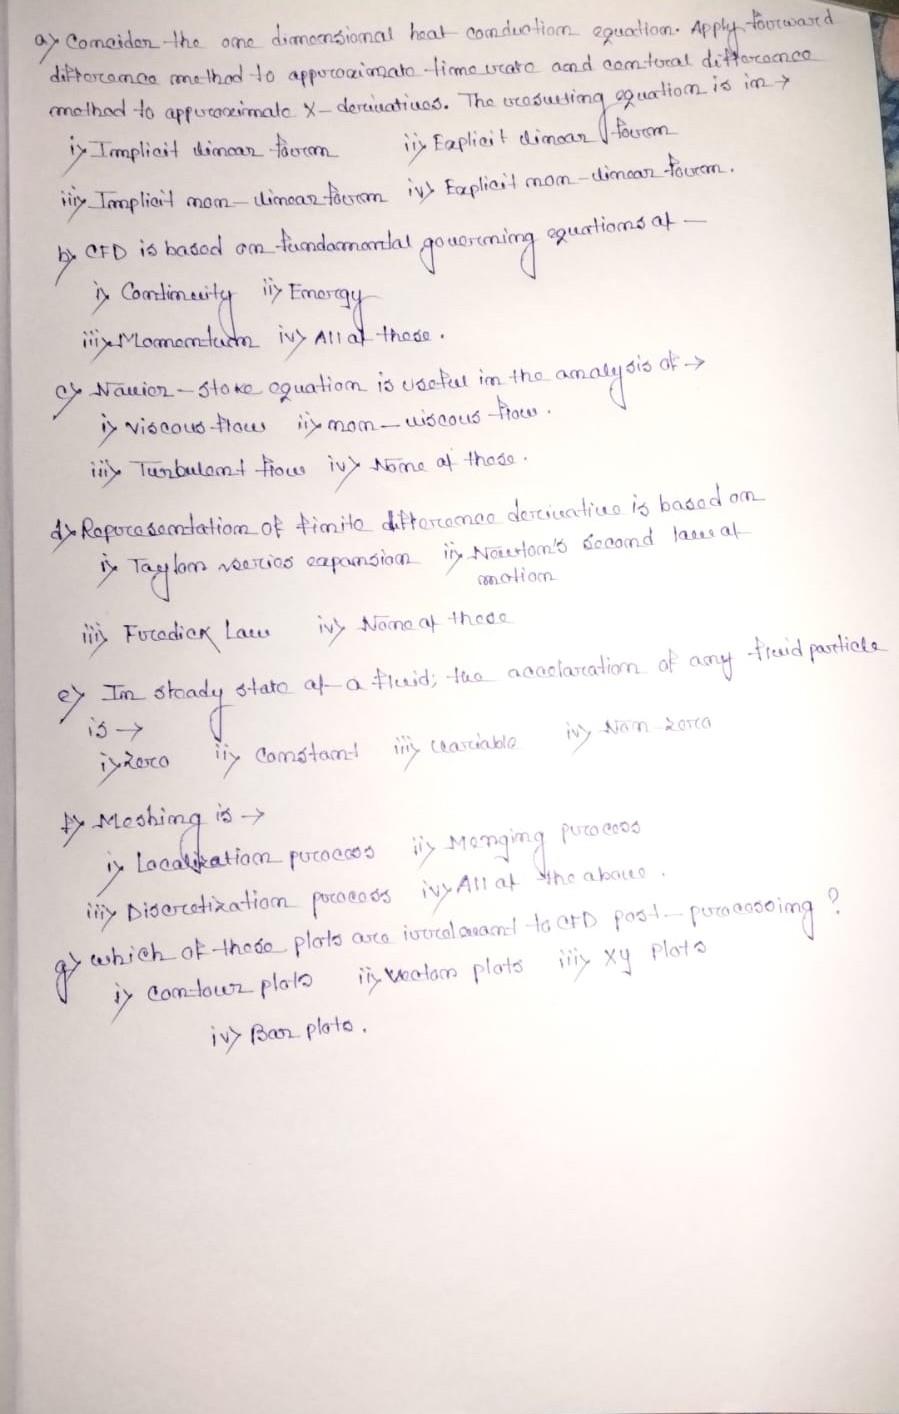 a) Consider the one dimensional heat conduction equation. Apply forward
difference method to approximate time rate and central difference
method to approximate x-derivatives. The resulting equation is in →
i) Implicit linear form ii) Explicit linear form
iii) Implicit non-linear form iv) Explicit non-linear form.
b) CFD is based on fundamental governing equations of —
i) Continuity ii) Energy
iii) Momentum iv) All of these.
c) Navier-Stoke equation is useful in the analysis of →
i) Viscous flow ii) non-viscous flow.
iii) Turbulent flow iv) None of these.
d) Representation of finite difference derivative is based on
i) Taylor series expansion ii) Newton's second law of
motion
iii) Law iv) None of these
e) In steady state of a fluid; the accelaration of any fluid particle
is →
i) zero ii) constant iii) variable iv) Non zero
f) Meshing is →
i) Localization process ii) Merging process
iii) Discretization process iv) All of the above.
g) which of these plots are irrelavant to CFD post-processing?
i) contour plots ii) Vector plots iii) xy plots
iv) Bar plots.